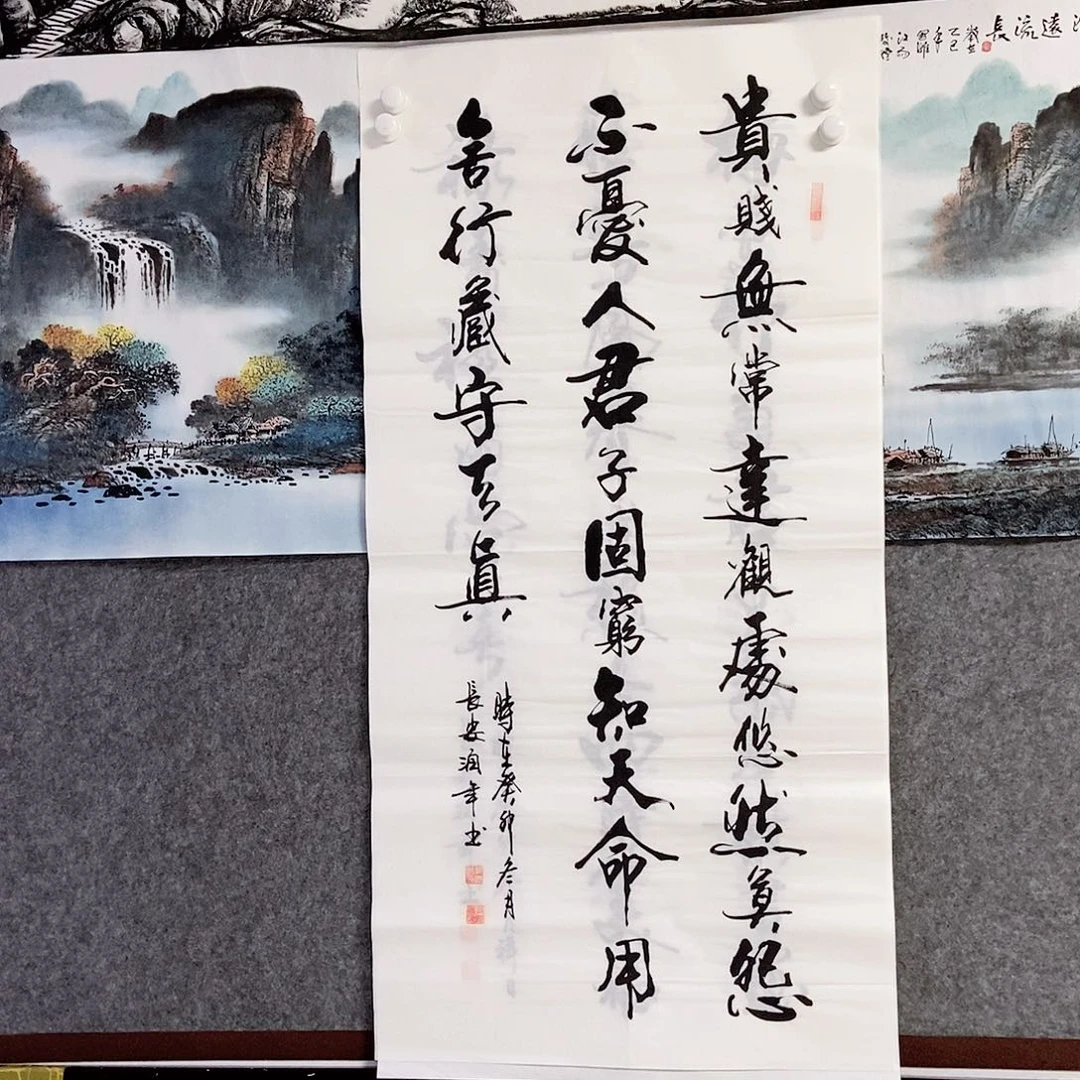 遠流長
歲在
乙巳
年
貴賤無常達觀處悠然莫怨
不憂人君子固窮知天命用
舍行藏守天真
時在癸卯冬月
長安润年书